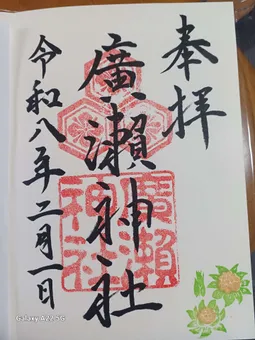 奉拝
廣瀬神社
廣瀬神社
令和八年二月一日
Galaxy A25 5G